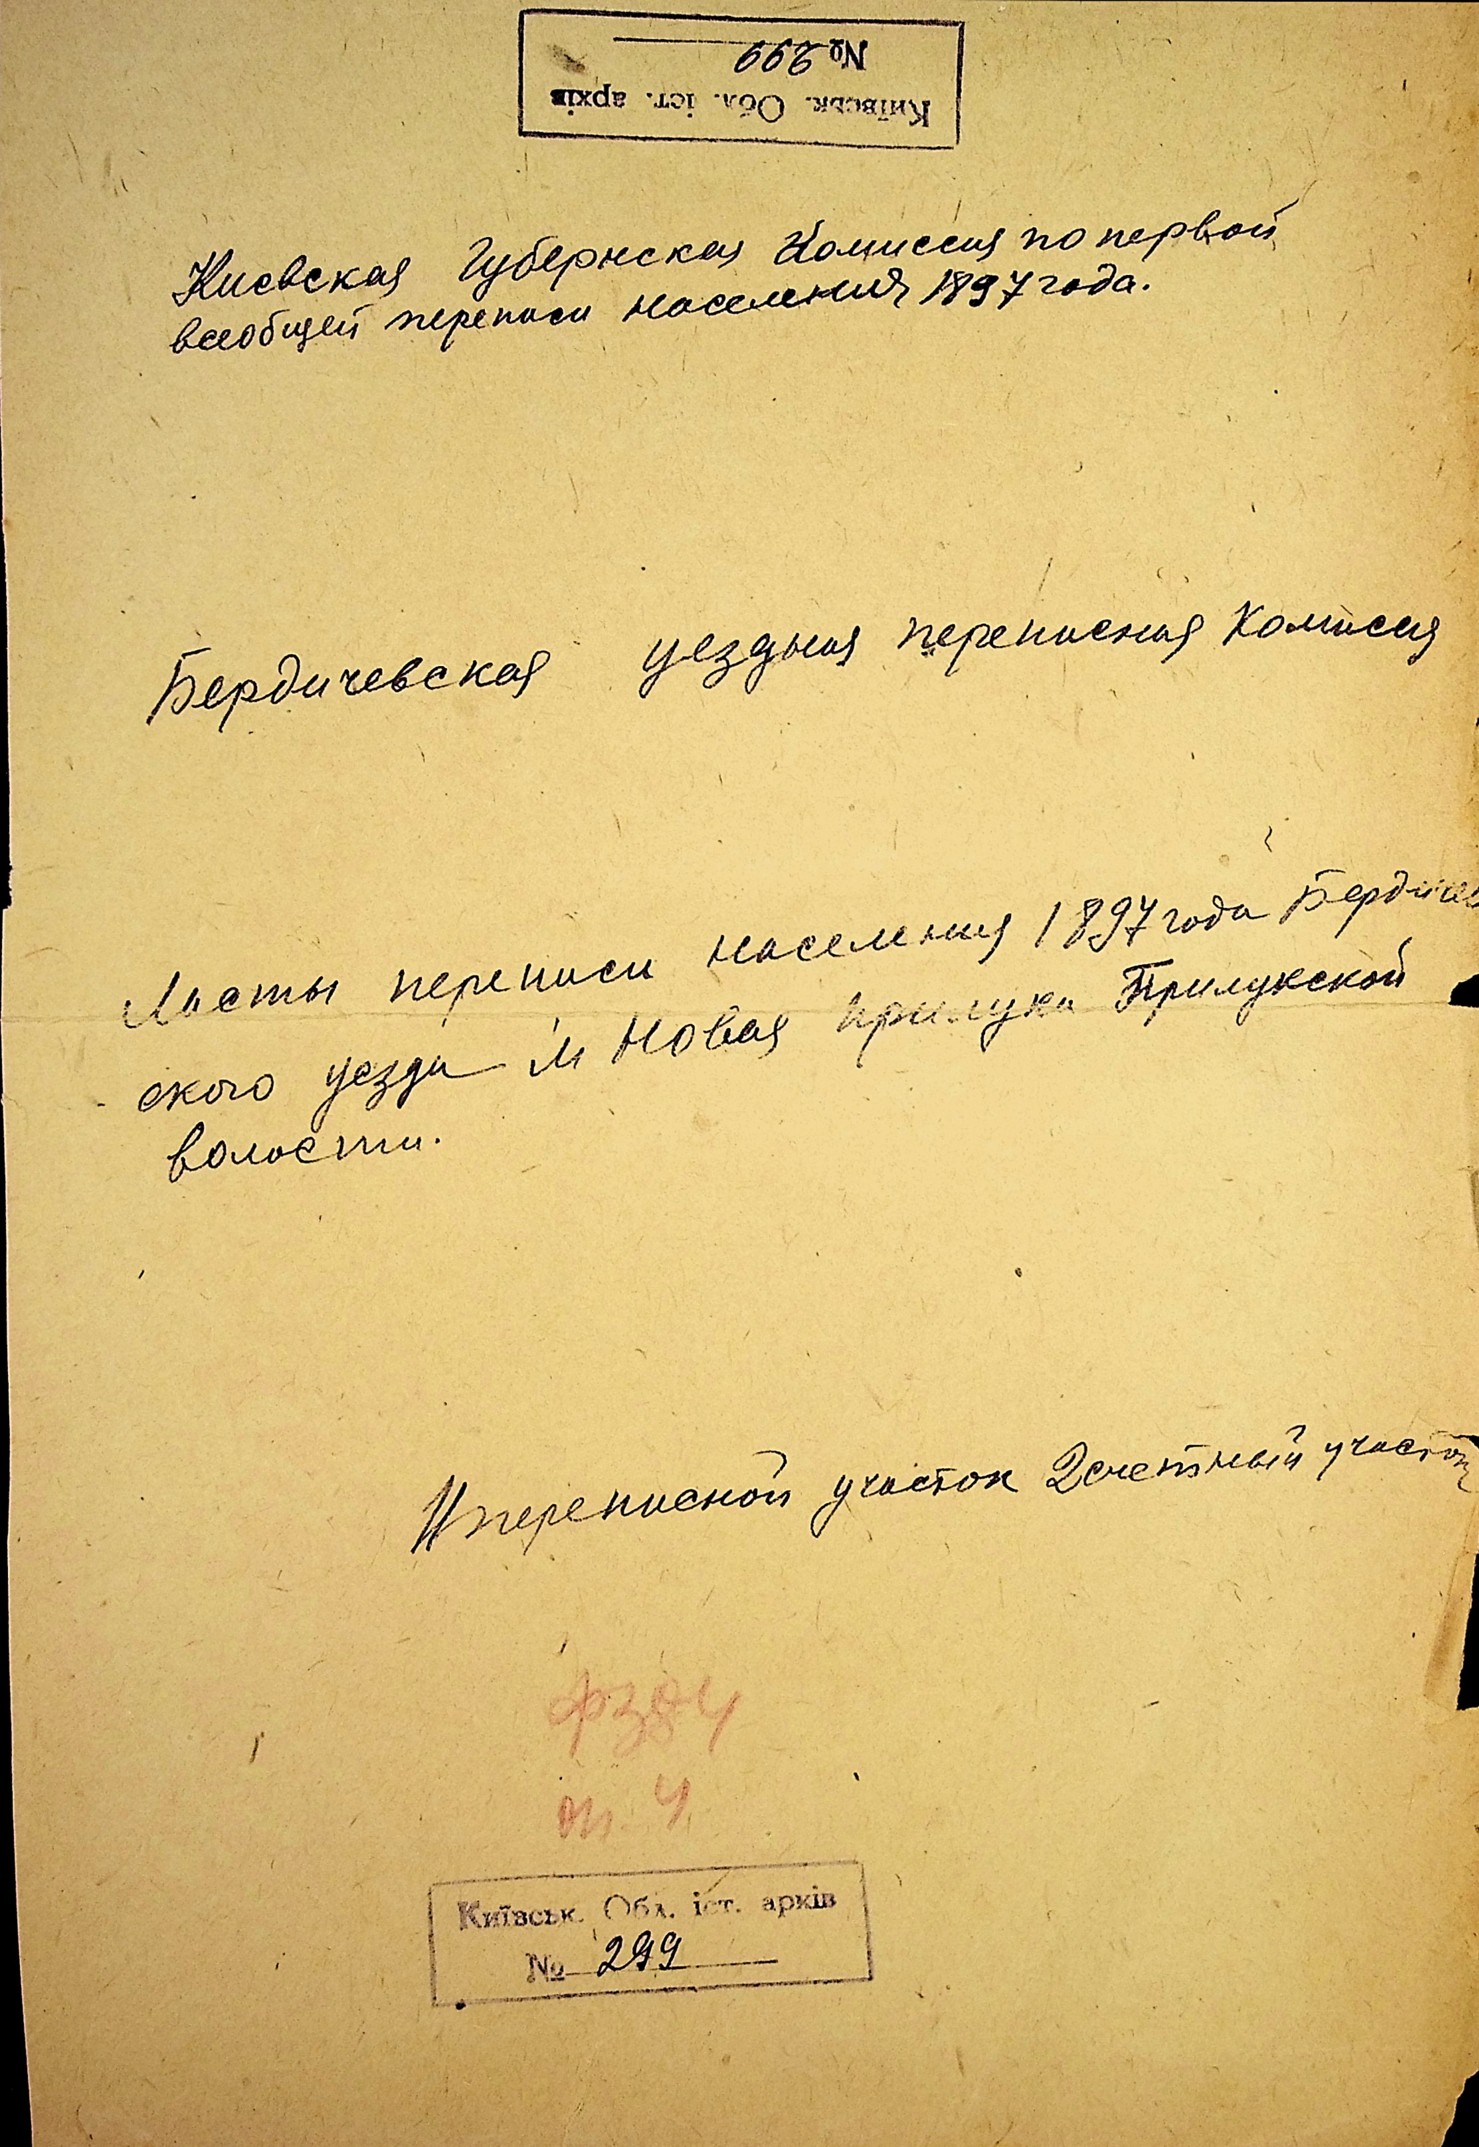 Київськ. Обл. іст. архів
№ 299
Киевская Губернская Комиссия по первой
всеобщей переписи населения 1897 года.
Бердичевская уездная переписная Комиссия
Листы переписи населения 1897 года Бердичев
ского уезда м Новая прилука Прилукской
волости.
II переписной участок 2 счетный участок
ф 384
оп. 4
Київськ. Обл. іст. архів
№ 299